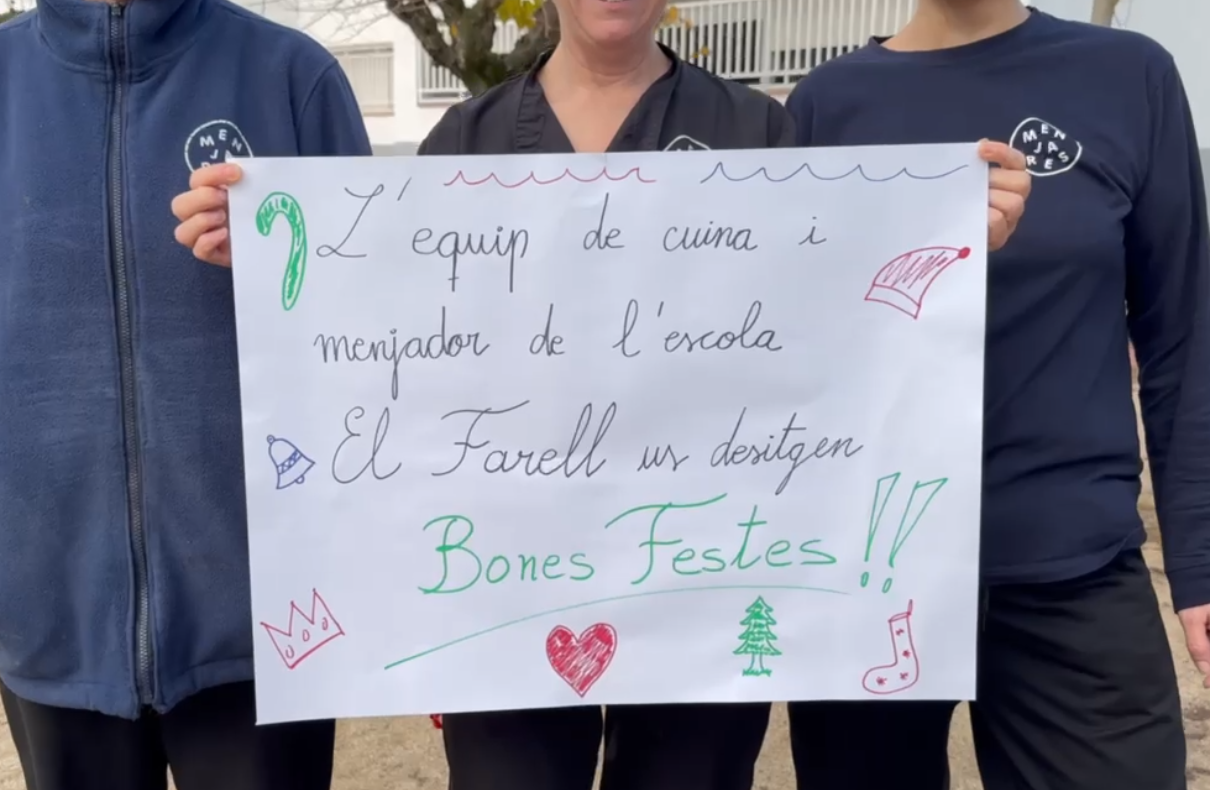 MEN
JA
MEN
JA
RES
L'equip de cuina i
menjador de l'escola
El Farell us desitgen
Bones Festes!!